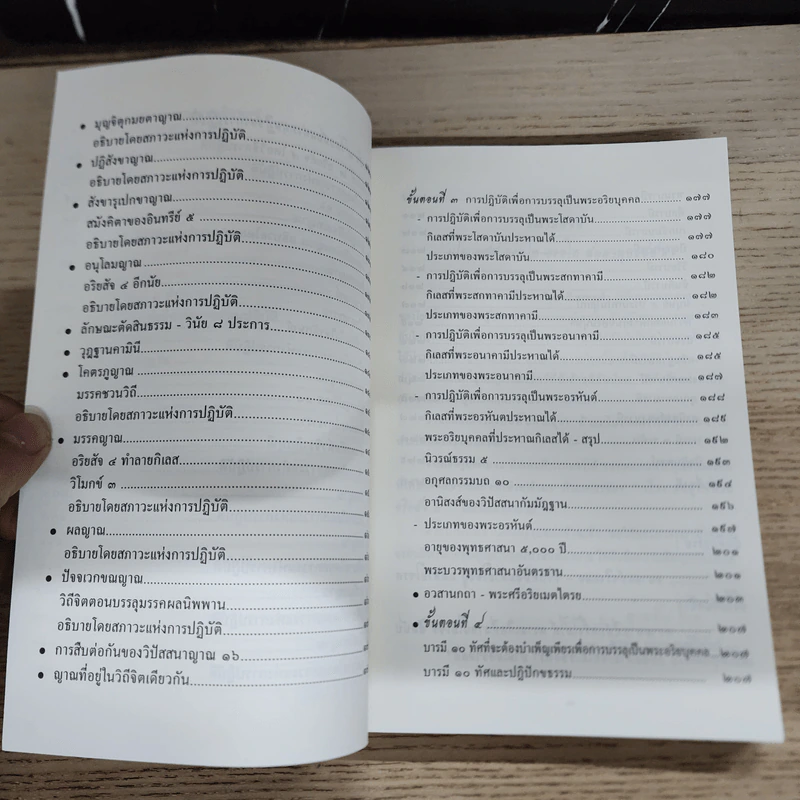 • มุญจิตุกมยตาญาณ
อธิบายโดยสภาวะแห่งการปฏิบัติ
• ปฏิสังขาญาณ
อธิบายโดยสภาวะแห่งการปฏิบัติ
• สังขารุเปกขาญาณ
สมังคิตาของอินทรีย์ ๕
อธิบายโดยสภาวะแห่งการปฏิบัติ
• อนุโลมญาณ
อริยสัจ ๔ อีกนัย
อธิบายโดยสภาวะแห่งการปฏิบัติ
• ลักษณะตัดสินธรรม - วินัย ๘ ประการ
• วุฏฐานคามินี
• โคตรภูญาณ
มรรคชวนวิถี
อธิบายโดยสภาวะแห่งการปฏิบัติ
• มรรคญาณ
อริยสัจ ๔ ทำลายกิเลส
วิโมกข์ ๓
อธิบายโดยสภาวะแห่งการปฏิบัติ
• ผลญาณ
อธิบายโดยสภาวะแห่งการปฏิบัติ
• ปัจจเวกขณญาณ
วิถีจิตตอนบรรลุมรรคผลนิพพาน
อธิบายโดยสภาวะแห่งการปฏิบัติ
• การสืบต่อกันของวิปัสสนาญาณ ๑๖
• ญาณที่อยู่ในวิถีจิตเดียวกัน
ขั้นตอนที่ ๓ การปฏิบัติเพื่อการบรรลุเป็นพระอริยบุคคล ๑๗๗
- การปฏิบัติเพื่อการบรรลุเป็นพระโสดาบัน ๑๗๗
กิเลสที่พระโสดาบันประหาณได้ ๑๗๗
ประเภทของพระโสดาบัน ๑๘๐
- การปฏิบัติเพื่อการบรรลุเป็นพระสกทาคามี ๑๘๒
กิเลสที่พระสกทาคามีประหาณได้ ๑๘๒
ประเภทของพระสกทาคามี ๑๘๓
- การปฏิบัติเพื่อการบรรลุเป็นพระอนาคามี ๑๘๕
กิเลสที่พระอนาคามีประหาณได้ ๑๘๕
ประเภทของพระอนาคามี ๑๘๗
- การปฏิบัติเพื่อการบรรลุเป็นพระอรหันต์ ๑๘๘
กิเลสที่พระอรหันตประหาณได้ ๑๘๙
พระอริยบุคคลที่ประหาณกิเลสได้ - สรุป ๑๙๒
นิวรณ์ธรรม ๕ ๑๙๓
อกุศลกรรมบถ ๑๐ ๑๙๔
อานิสงส์ของวิปัสสนากัมมัฏฐาน ๑๙๖
- ประเภทของพระอรหันต์ ๑๙๗
อายุของพุทธศาสนา ๕,๐๐๐ ปี ๒๐๑
พระบวรพุทธศาสนาอันตรธาน ๒๐๑
• อวสานกถา - พระศรีอริยเมตไตรย ๒๐๓
• ขั้นตอนที่ ๔ ๒๐๗
บารมี ๑๐ ทัศที่จะต้องบำเพ็ญเพียรเพื่อการบรรลุเป็นพระอริยบุคคล ๒๐๗
บารมี ๑๐ ทัศและปฏิปักขธรรม ๒๐๗